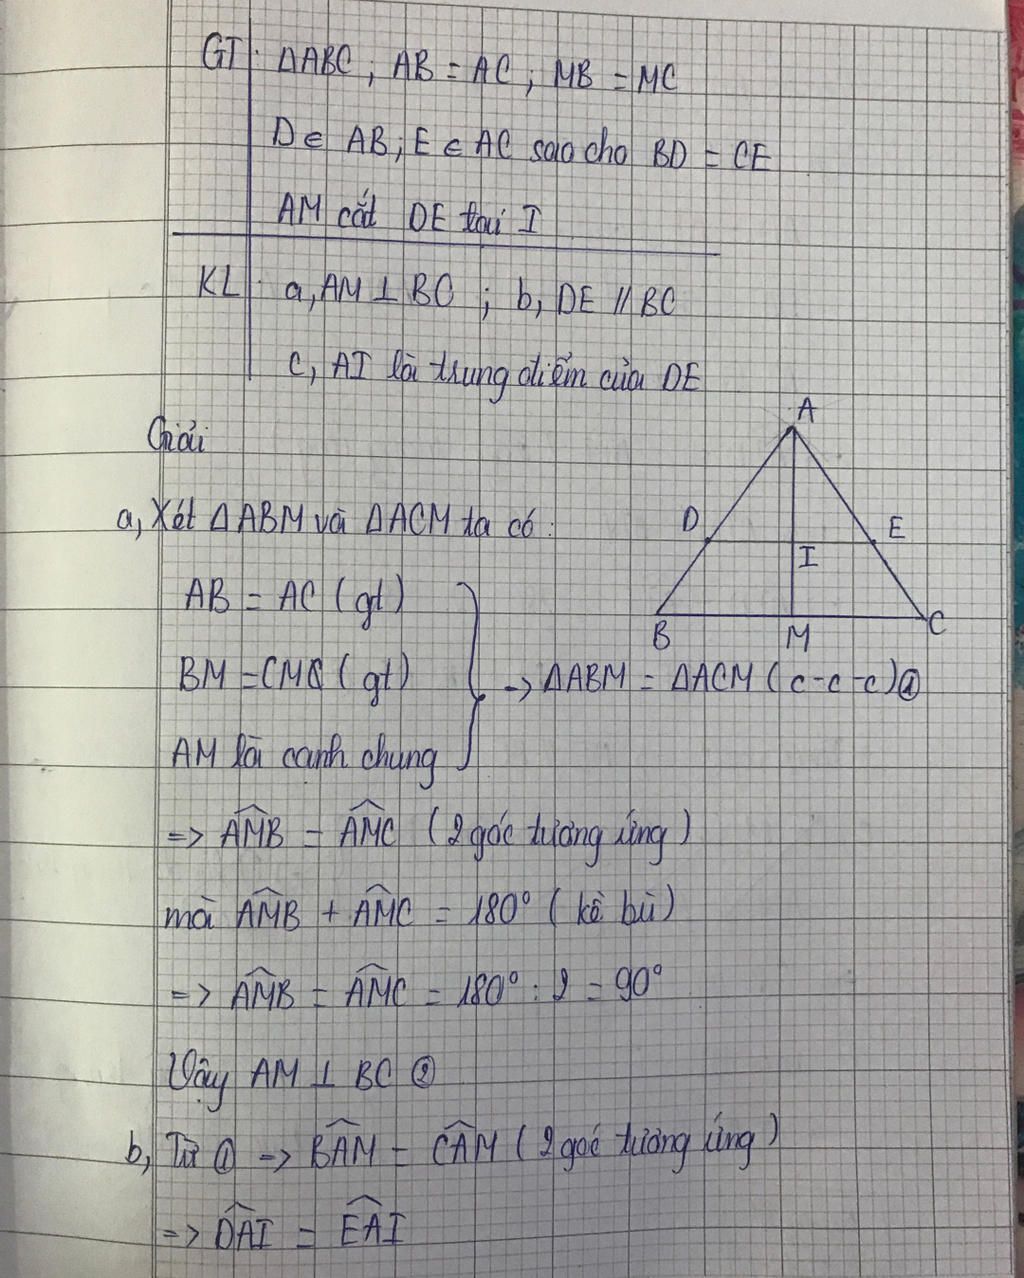 GT ΔABC ; AB = AC ; MB = MC
D ∈ AB ; E ∈ AC sao cho BD = CE
AM cắt DE tại I
KL a, AM ⊥ BC ; b, DE // BC
c, AI là trung điểm của DE
Giải
a, Xét ΔABM và ΔACM ta có :
AB = AC (gt)
BM = CM (gt)
AM là cạnh chung
=> ΔABM = ΔACM (c-c-c) ①
=> \widehat{AMB} = \widehat{AMC} (2 góc tương ứng)
mà \widehat{AMB} + \widehat{AMC} = 180° (kề bù)
=> \widehat{AMB} = \widehat{AMC} = 180° : 2 = 90°
Vậy AM ⊥ BC ②
b, Từ ① => \widehat{BAM} = \widehat{CAM} (2 góc tương ứng)
=> \widehat{DAI} = \widehat{EAI}
A
D
E
I
B
M
C